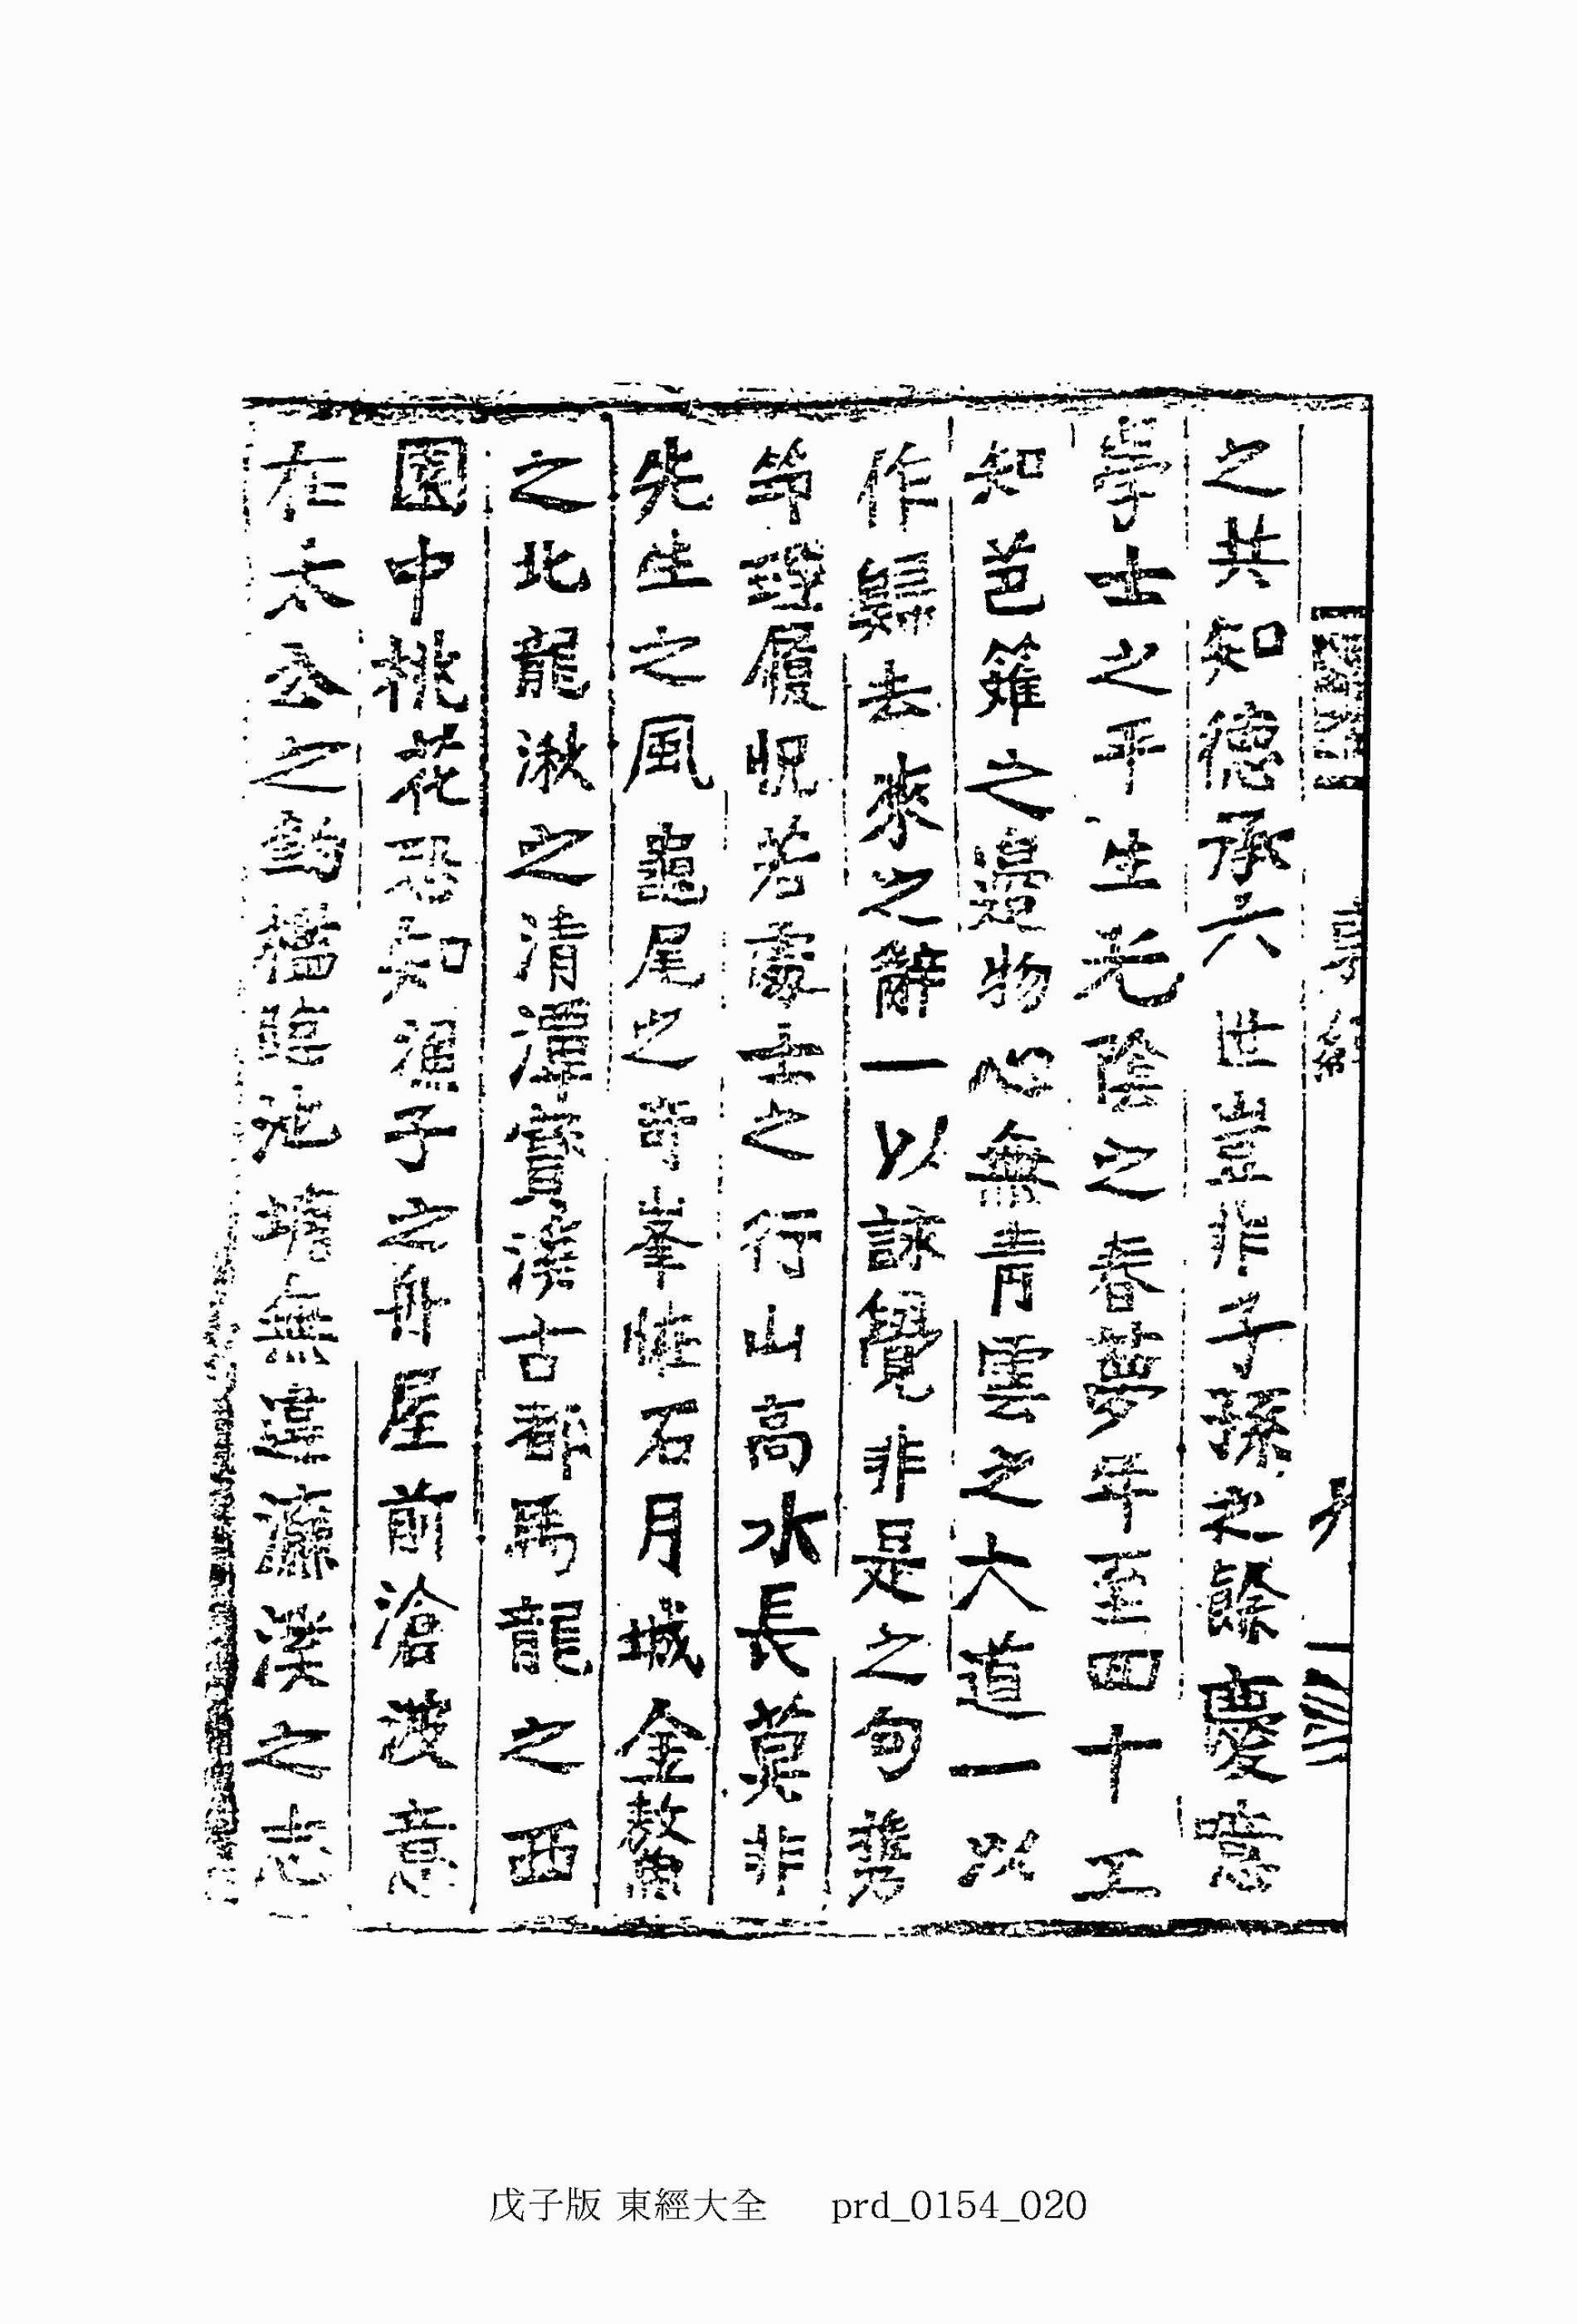 之共知德承六 世豈非子孫之餘慶噫
學士之平生光陰之春夢年至四十工
知芭籬之邊物心無靑雲之大道一以
作歸去來之辭一以詠覺非是之句携
筇理履怳若處士之行山高水長莫非
先生之風龜尾之奇峯恠石月城金鰲
之北龍湫之清潭寶溪古都馬龍之西
園中桃花恐知漁子之舟屋前滄波意
在太公之釣檻臨池塘無違濂溪之志
戊子版 東經大全 prd_0154_020